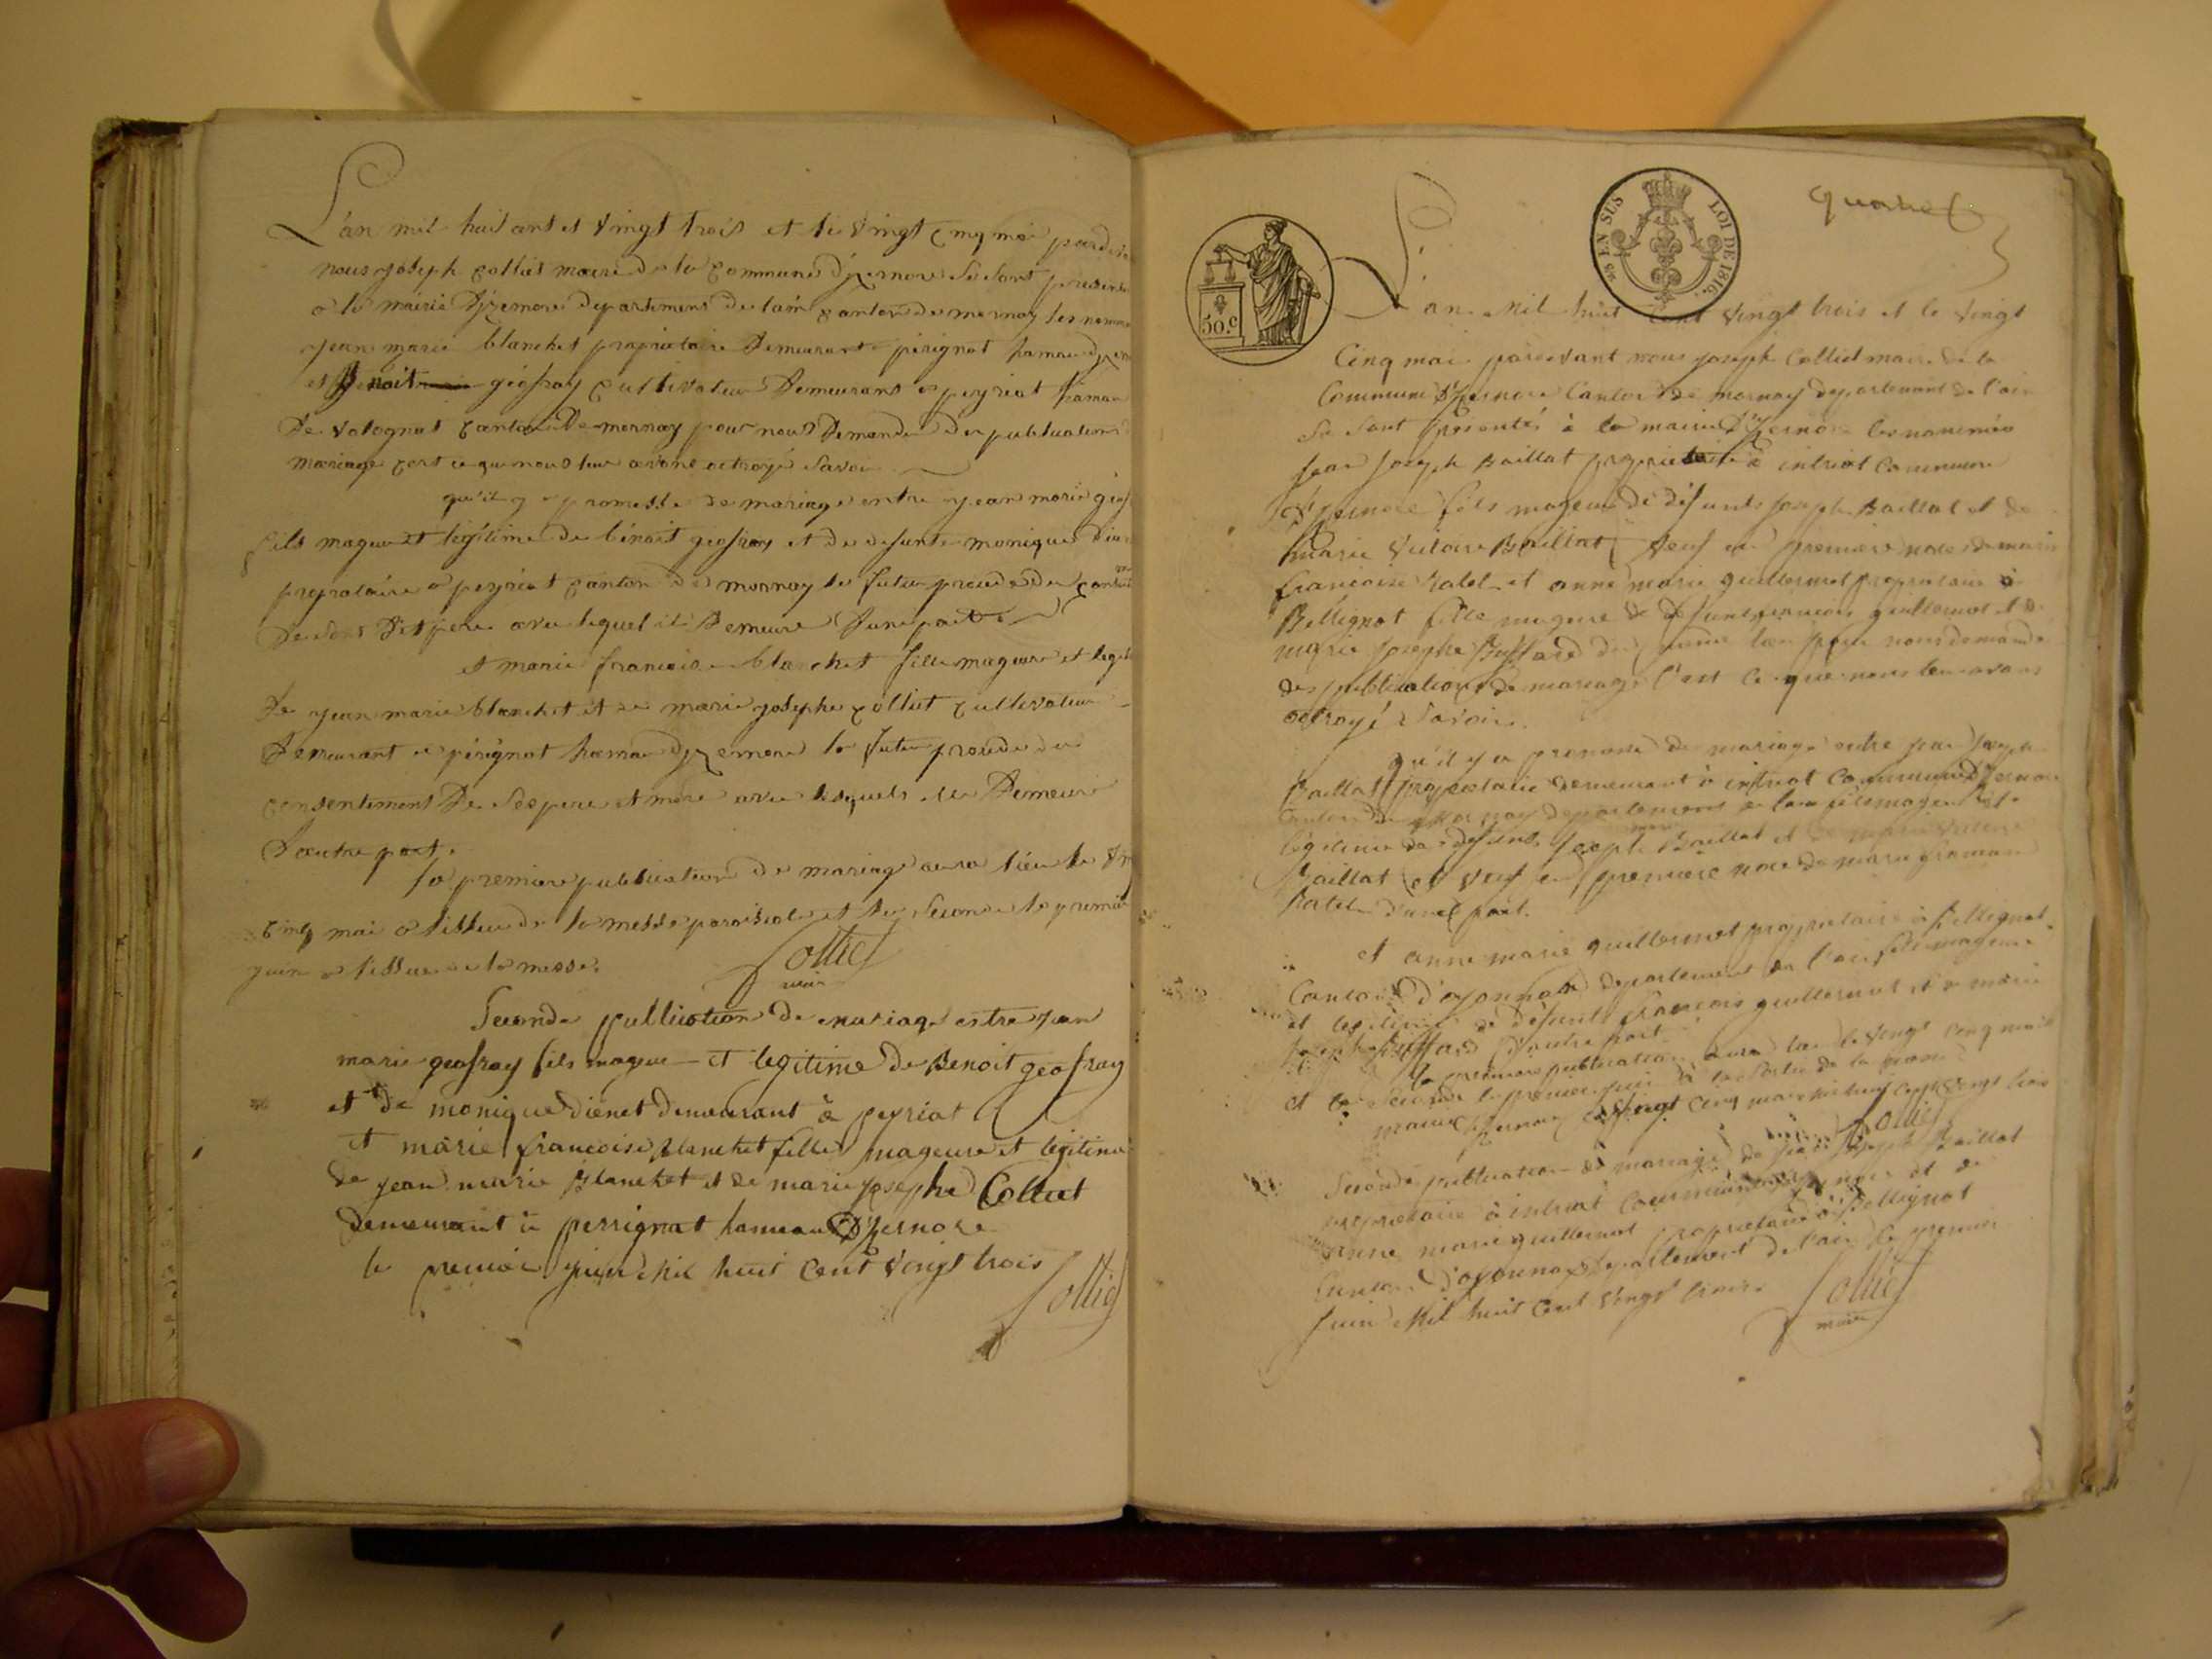 L'an mil huit cent et vingt trois et le vingt cinq mai pardevant
nous joseph colliet maire de la commune d'jzernore se sont presentes
a la mairie d'jzernore departement de lain canton de mornay les nommes
jean marie blanchet proprietaire demeurant a pérignat hamau djzern
et Benoit geofray cultivateur demeurant a peyriat hamau
de volognat canton de mornay pour nous demander des publications
mariage cest ce que nous leur avons octroyé savoir
qu'il y a promesse de mariage entre jean marie geof
fils mageur et légitime de bénoit geofray et de defunte monique
propriétaire a peyriat canton de mornay le futur procede du
de son dit pere avec lequel il demeure d'une part
et marie francoise blanchet fille mageure et legit
de jean marie blanchet et de marie josephe colliet cultivateur
demeurant a pérignat hamau djzernore la future procede du
consentement de ses pere et mere avec lesquels elle demeure
d'autre part.
la premiere publication de mariage aura lieu le vin
cinq mai a lissue de la messe paroisiale et la seconde le premier
juin a lissue de la messe.
Colliet
maire
Seconde publication de mariage entre jean
marie geofray fils mageur et legitime de Benoit geofray
et de monique dienet demeurant à peyriat
et marie francoise Blanchet fille mageure et legitime
de jean marie Blanchet et de marie josephe Colliet
demeurant à perrignat hameau d'Izernore
le premier juin mil huit cent vingt trois
Colliet
50.c
EN SUS LOI DE 1816.
L'an mil huit cent vingt trois et le vingt
Cinq mai pardevant nous joseph Colliet maire de la
Commune d'Izernore Canton de mornay departement de l'ain
Se sont présentés à la mairie d'Izernore les nommés
Jean Joseph Baillat propriétaire à intriat Commune
d'Izernore fils mageur de défunts joseph Baillat et de
marie Victoire Baillat veuf en premiere noce de marie
francoise Ratel et anne marie guillermet propriétaire à
Bellignat fille mageure de défunt francois guillermet et de
marie josephe du même lieu pour nous demander
des publications de mariage C'est ce que nous leur avons
octroyé Savoir.
qu'il y a promesse de mariage entre jean joseph
Baillat propriétaire demeurant à intriat Commune d'Izernore
Canton de mornay departement de l'ain fils mageur et
légitime de défunts joseph Baillat et de marie Victoire
Baillat et veuf en premiere noce de marie francoise
Ratel d'une part.
et anne marie guillermet propriétaire à Bellignat
Canton d'oyonnax departement de l'ain fille mageure
et legitime de défunt francois guillermet et de marie
josephe d'autre part
la premiere publication aura lieu le vingt cinq mai
et la Seconde le premier juin à la sortie de la messe
mairie d'Izernore le vingt cinq mai mil huit cent vingt trois
Colliet
Seconde publication de mariage de jean joseph Baillat
propriétaire à intriat Commune d'Izernore et de
anne marie guillermet propriétaire à Bellignat
Canton d'oyonnax departement de l'ain le premier
Juin mil huit cent vingt trois
Colliet
maire